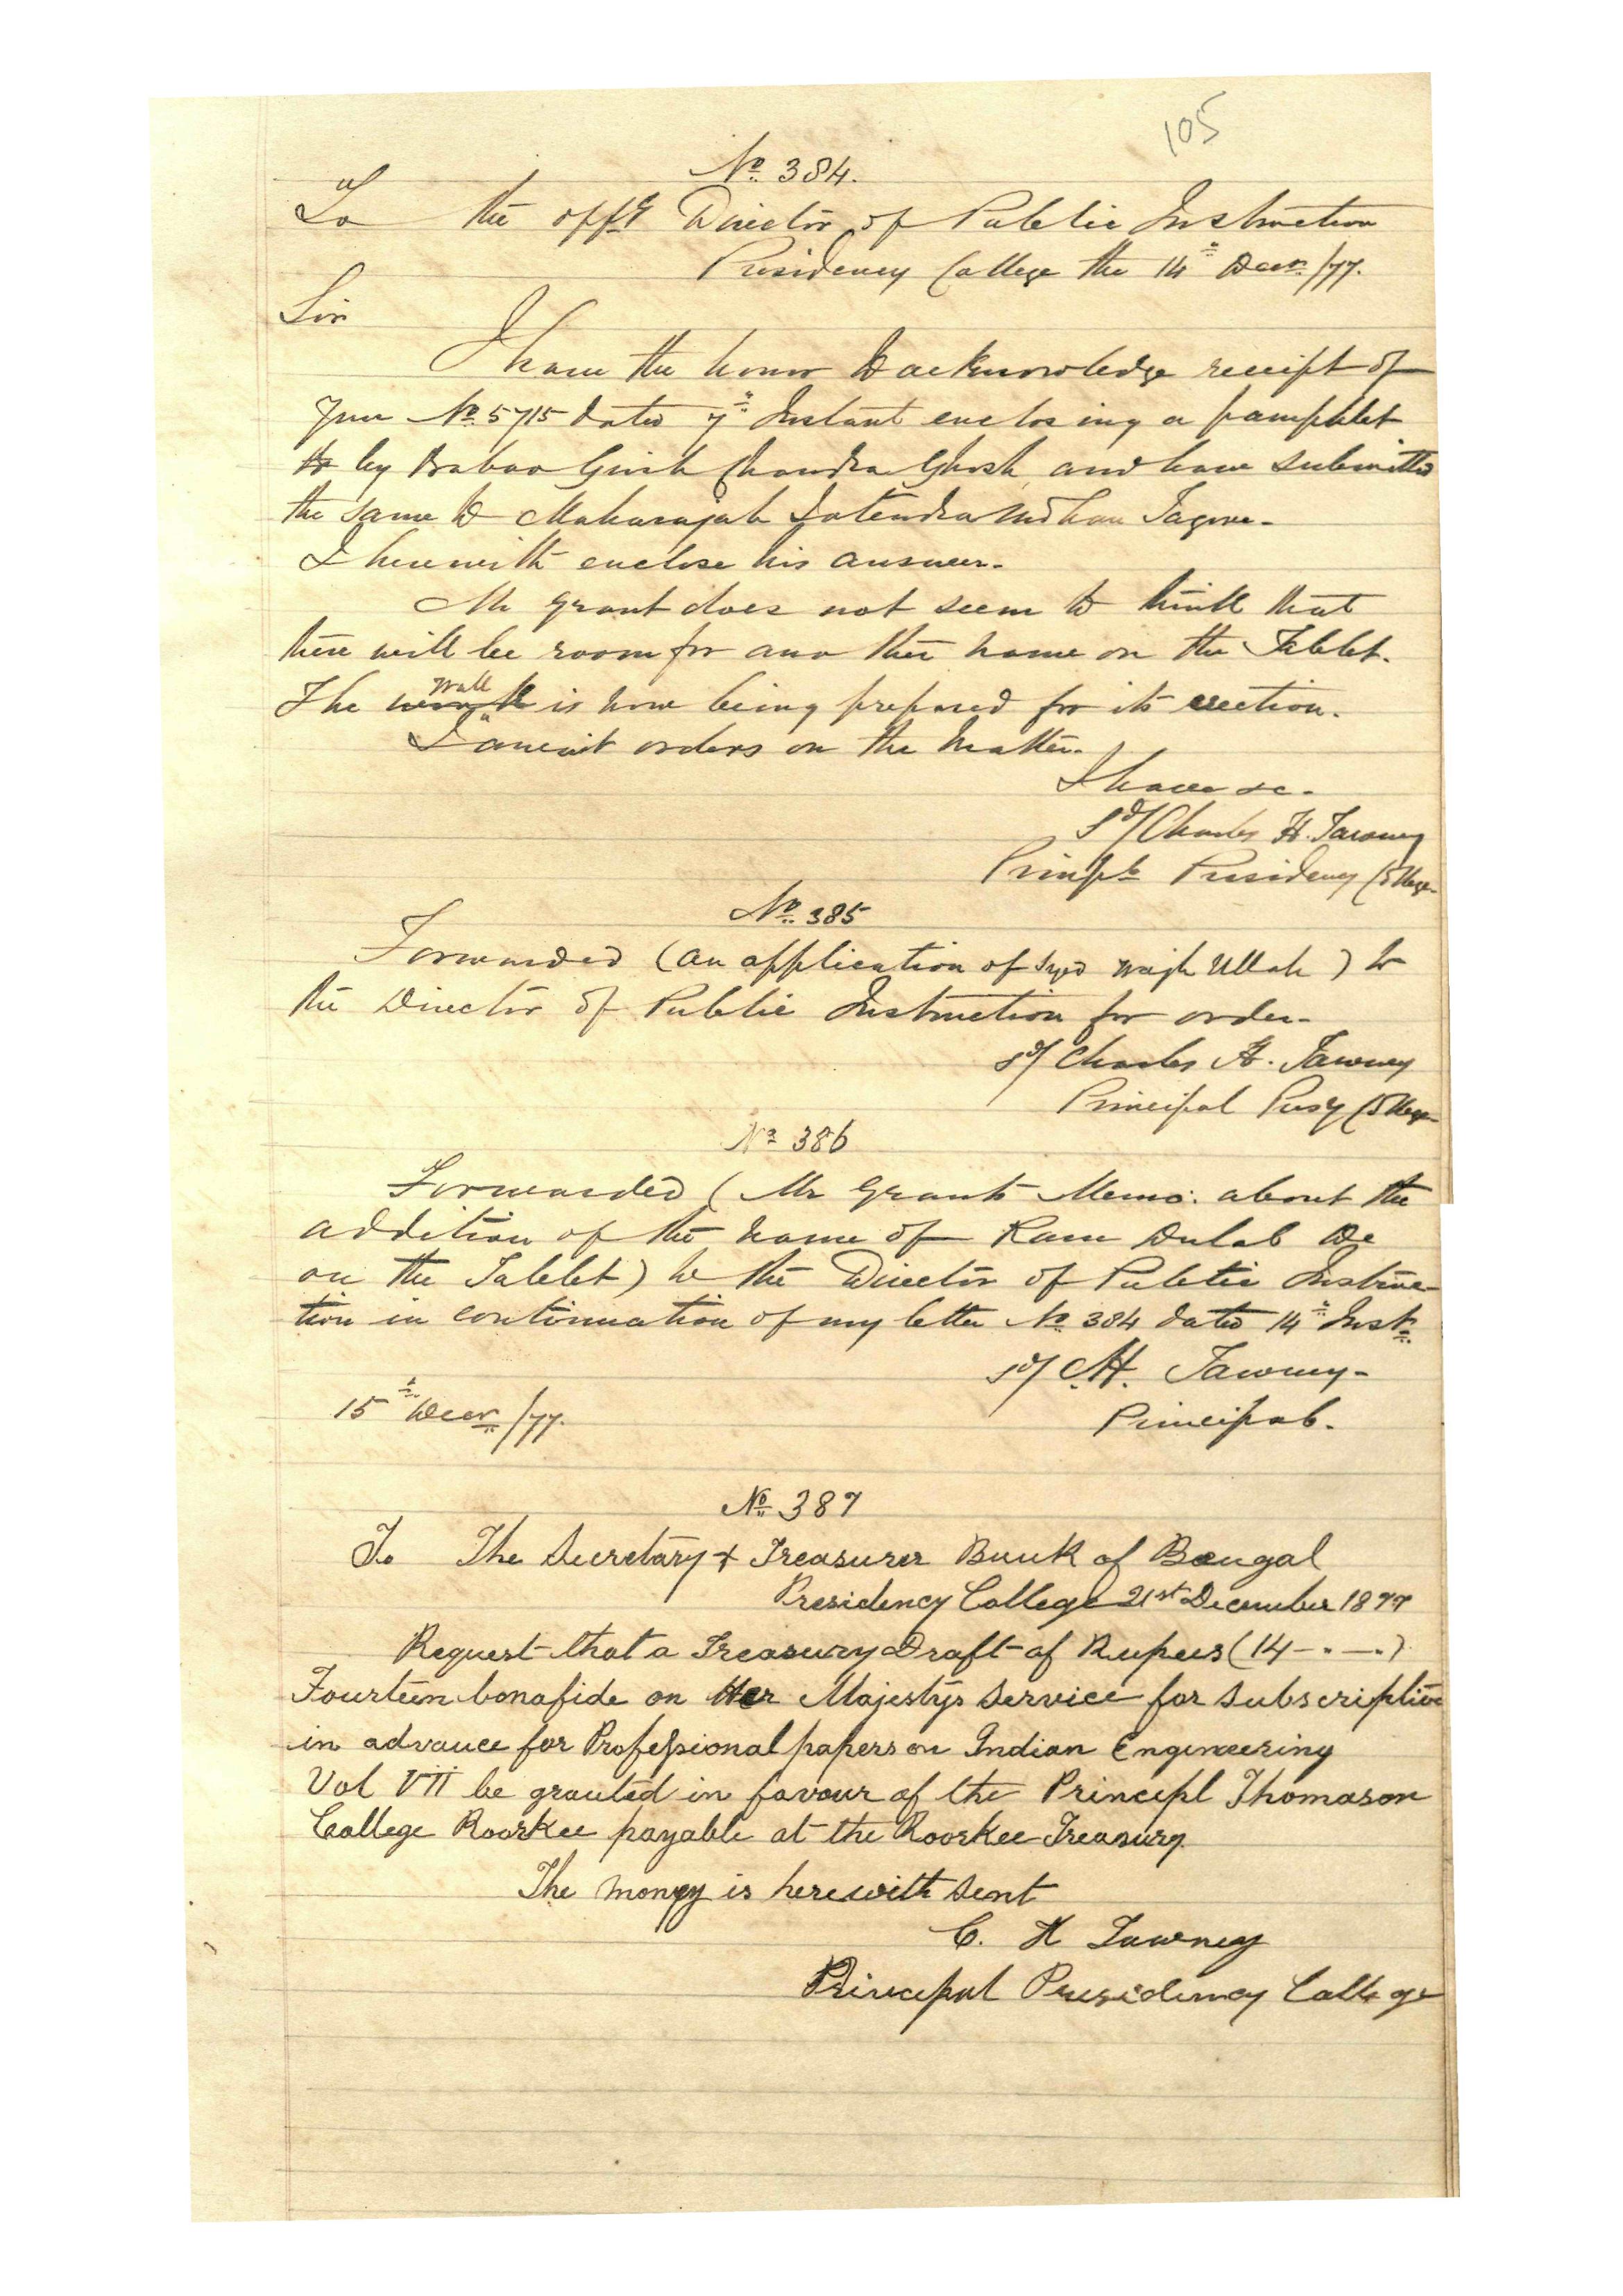 105
No. 384.
To the offg Director of Public Instruction
Presidency College the 14th Decr. /77.
Sir
I have the honor to acknowledge receipt of
your No. 5715 dated 7th Instant enclosing a pamphlet
to by Baboo Girish Chandra Ghosh, and have submitted
the same to Maharajah Jotendra Mohan Tagore.
I herewith enclose his answer.
Mr Grant does not seem to think that
there will be room for another name on the Tablet.
The wall is now being prepared for its erection.
I await orders on the matter.
I have &c.
Sd/ Charles H. Tawney
Principl Presidency College
No. 385
Forwarded (an application of Syed Ullah) to
the Director of Public Instruction for order.
Sd/ Charles H. Tawney
Principal Presy College
No. 386
Forwarded (Mr Grants Memo. about the
addition of the name of Ram Dulal De
on the Tablet) to the Director of Public Instruc-
tion in continuation of my letter No. 384 dated 14th Inst.
Sd/ C.H. Tawney-
15th Decr /77.
Principal.
No. 387
To The Secretary & Treasurer Bank of Bengal
Presidency College 21st December 1877
Request that a Treasury Draft of Rupees (14 - . - .)
Fourteen bonafide on Her Majestys Service for subscription
in advance for Professional papers on Indian Engineering
Vol VII be granted in favour of the Principl Thomason
College Roorkee payable at the Roorkee Treasury.
The money is herewith sent
C. H Tawney
Principal Presidency College